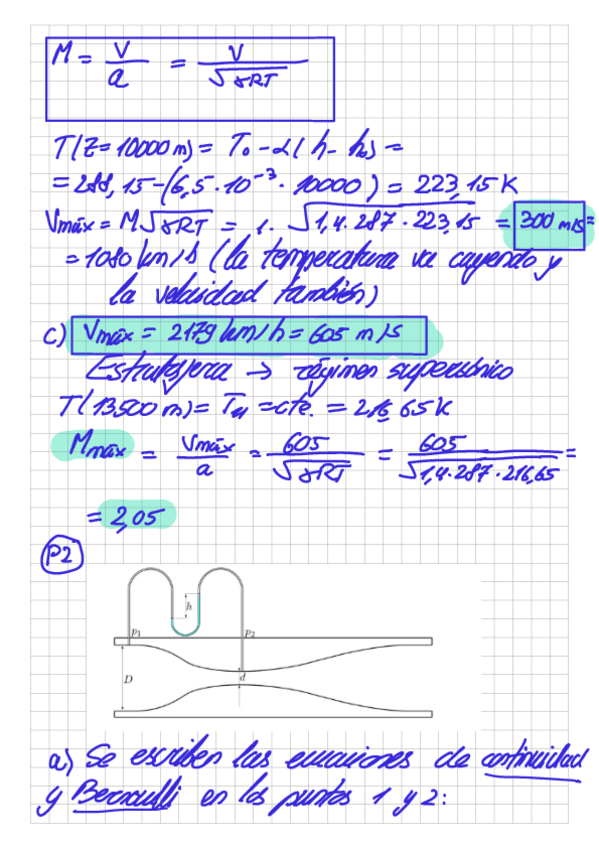 M = V/a = V/√γRT
T(Z=10000m) = T₀ - α(h - h₀) =
= 288,15 - (6,5·10⁻³·10000) = 223,15 K
Vmáx = M√γRT = 1·√1,4·287·223,15 = 300 m/s =
= 1080 km/s (la temperatura va cayendo y
la velocidad también)
c) Vmáx = 2179 km/h = 605 m/s
Estratosfera → régimen supersónico
T(13500m) = T₁₁ = cte. = 216,65 K
Mmáx = Vmáx/a = 605/√γRT = 605/√1,4·287·216,65 =
= 2,05
P2
h
p₁ p₂
D d
a) Se escriben las ecuaciones de continuidad
y Bernoulli en los puntos 1 y 2: